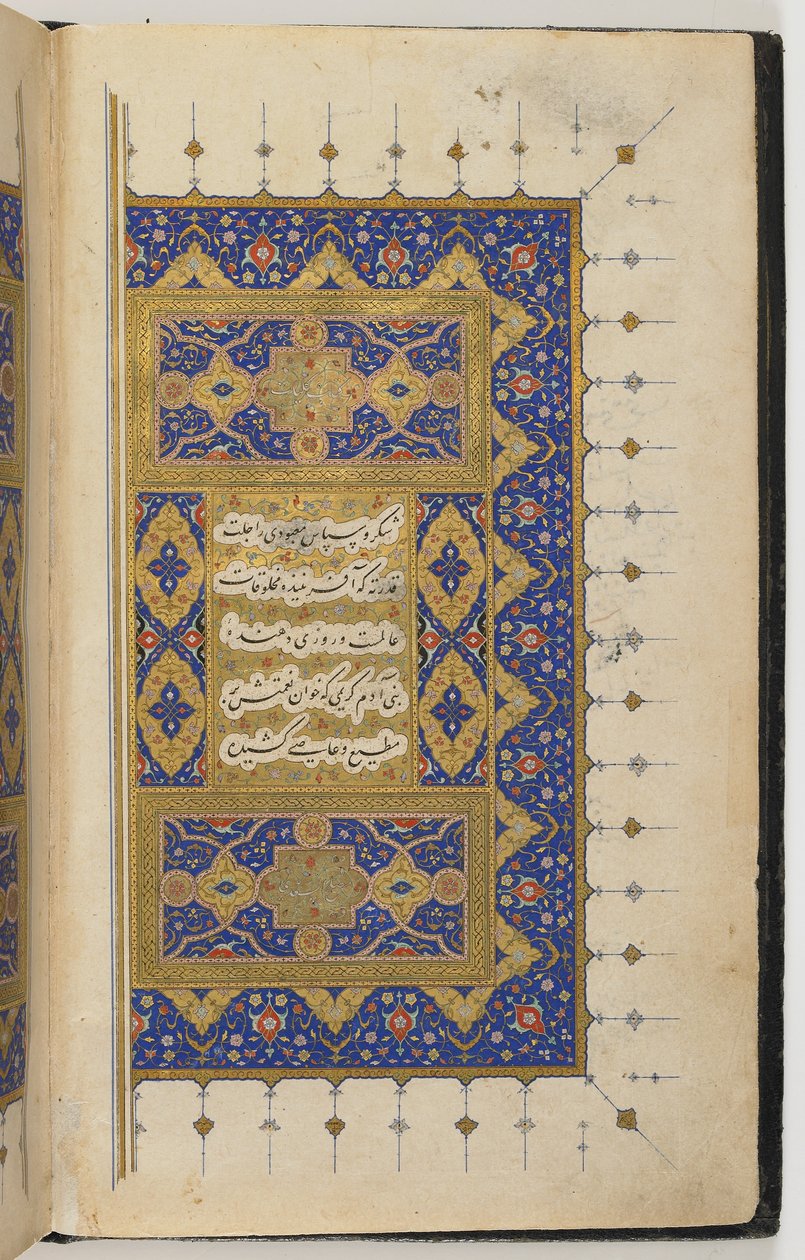 کتاب کلیات
شکر و سپاس معبودی را جلت
قدرته که آفریننده مخلوقات
عالمست و روزی دهنده
بنی آدم کریمی که خوان نعمتش بر
مطیع و عاصی کشیده